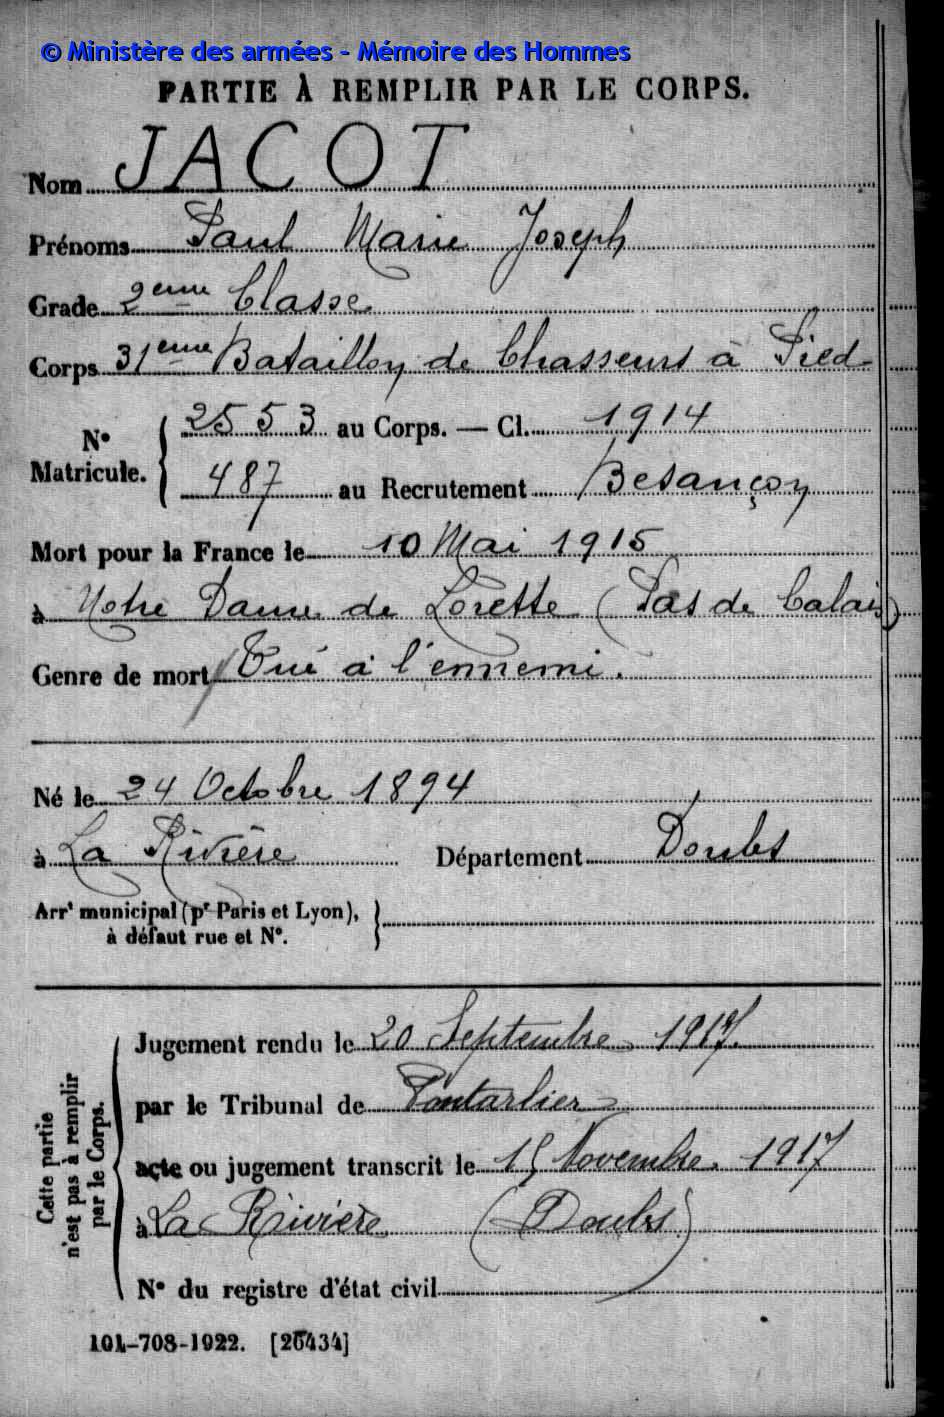 © Ministère des armées - Mémoire des Hommes
PARTIE À REMPLIR PAR LE CORPS.
Nom JACOT
Prénoms Paul Marie Joseph
Grade 2eme Classe
Corps 31eme Bataillon de Chasseurs à Pied
N° Matricule. { 2553 au Corps. — Cl. 1914
487 au Recrutement Besançon
Mort pour la France le 10 Mai 1915
à Notre Dame de Lorette (Pas de Calais)
Genre de mort Tué à l'ennemi.
Né le 24 Octobre 1894
à La Rivière Département Doubs
Arrt municipal (pr Paris et Lyon),
à défaut rue et N°.
Cette partie n'est pas à remplir par le Corps.
Jugement rendu le 20 Septembre 1917.
par le Tribunal de Pontarlier
acte ou jugement transcrit le 15 Novembre 1917
à La Rivière (Doubs)
N° du registre d'état civil
101-708-1922. [26434]